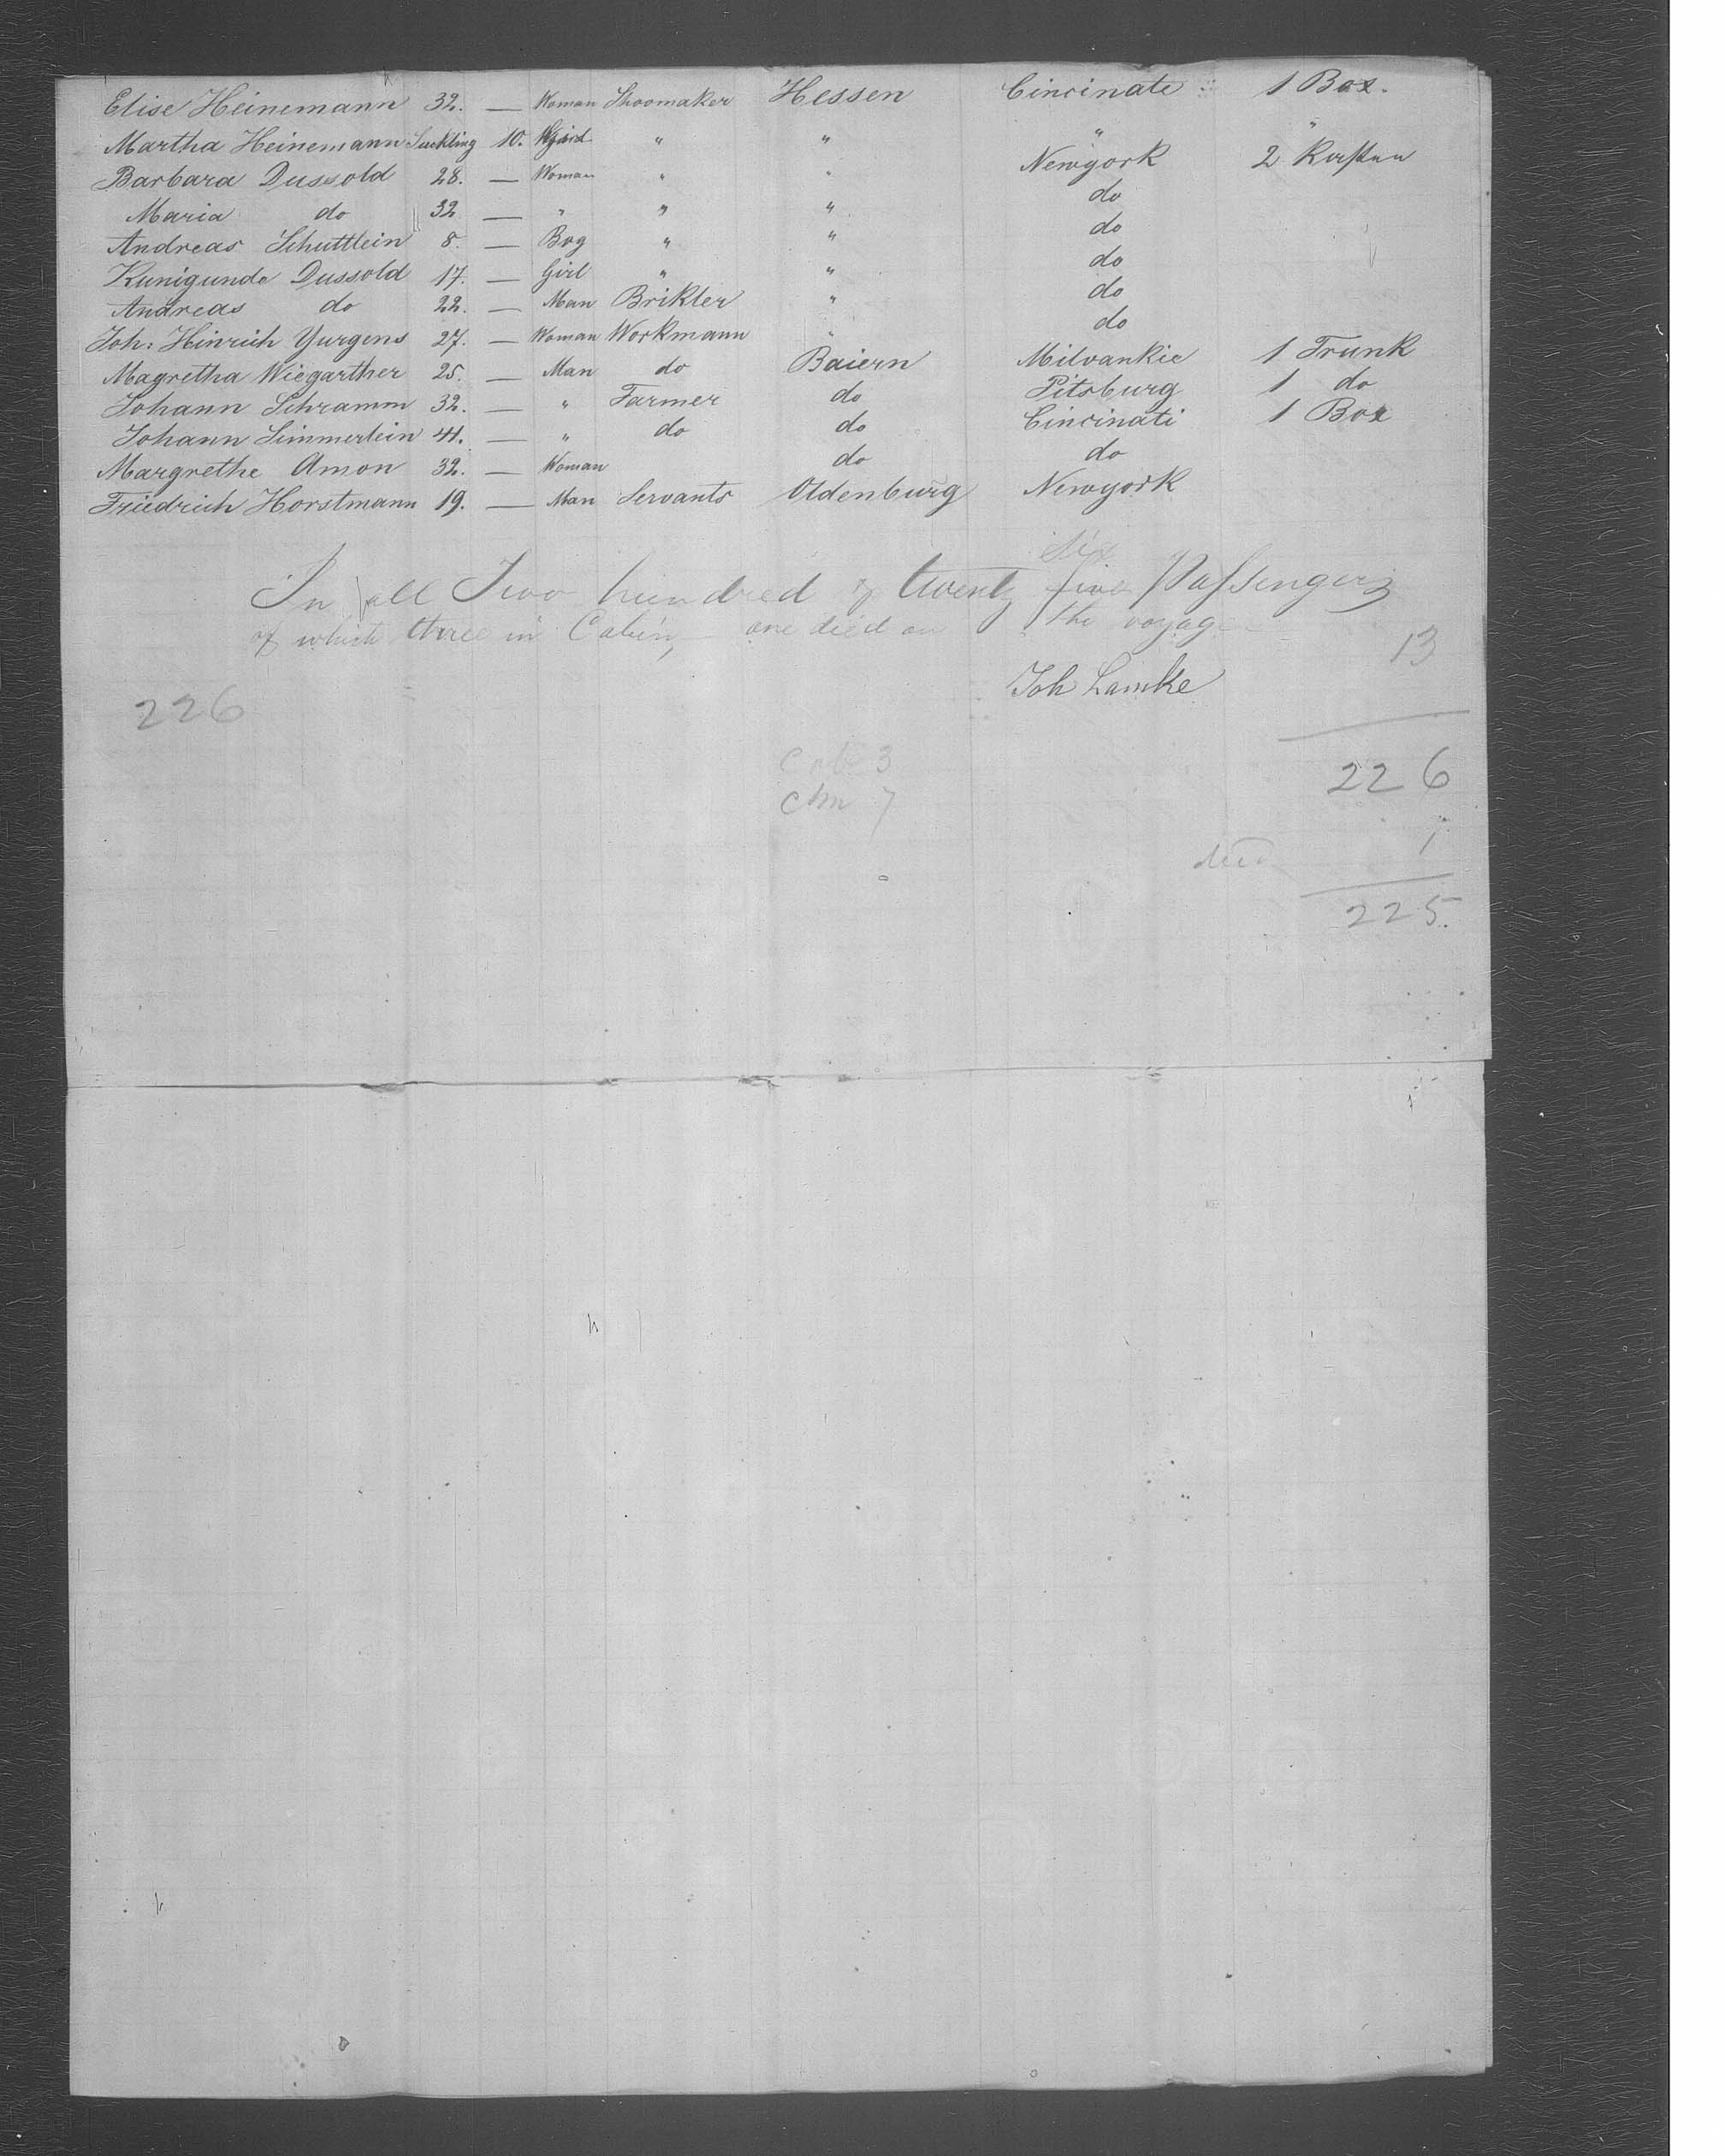 Elise Heinemann 32. — Woman Shoomaker Hessen Cincinate 1 Box.
Martha Heinemann Suckling 10. " " " "
Barbara Dussold 28. — Woman " " Newyork 2 Kasten
Maria do 32 — " " " do
Andreas Schuttlein 8. — Boy " " do
Kunigunde Dussold 17. — Girl " " do
Andreas do 22. — Man Brikler " do
Joh: Hinrich Yurgens 27. — Woman Workmann " do
Magretha Wiegarther 25. — Man do Baiern Milvankie 1 Trunk
Johann Schramm 32. — " Farmer do Pitsburg 1 do
Johann Simmerlein 41. — " do do Cincinati 1 Box
Margrethe Amon 32. — Woman do do
Friedrich Horstmann 19. — Man Servants Oldenburg Newyork
six
In all Two hundred & twenty five Passengers
of which three in Cabin, one died on the voyage
13
Joh Lamke
226
Cab 3
226
7
died 1
225.